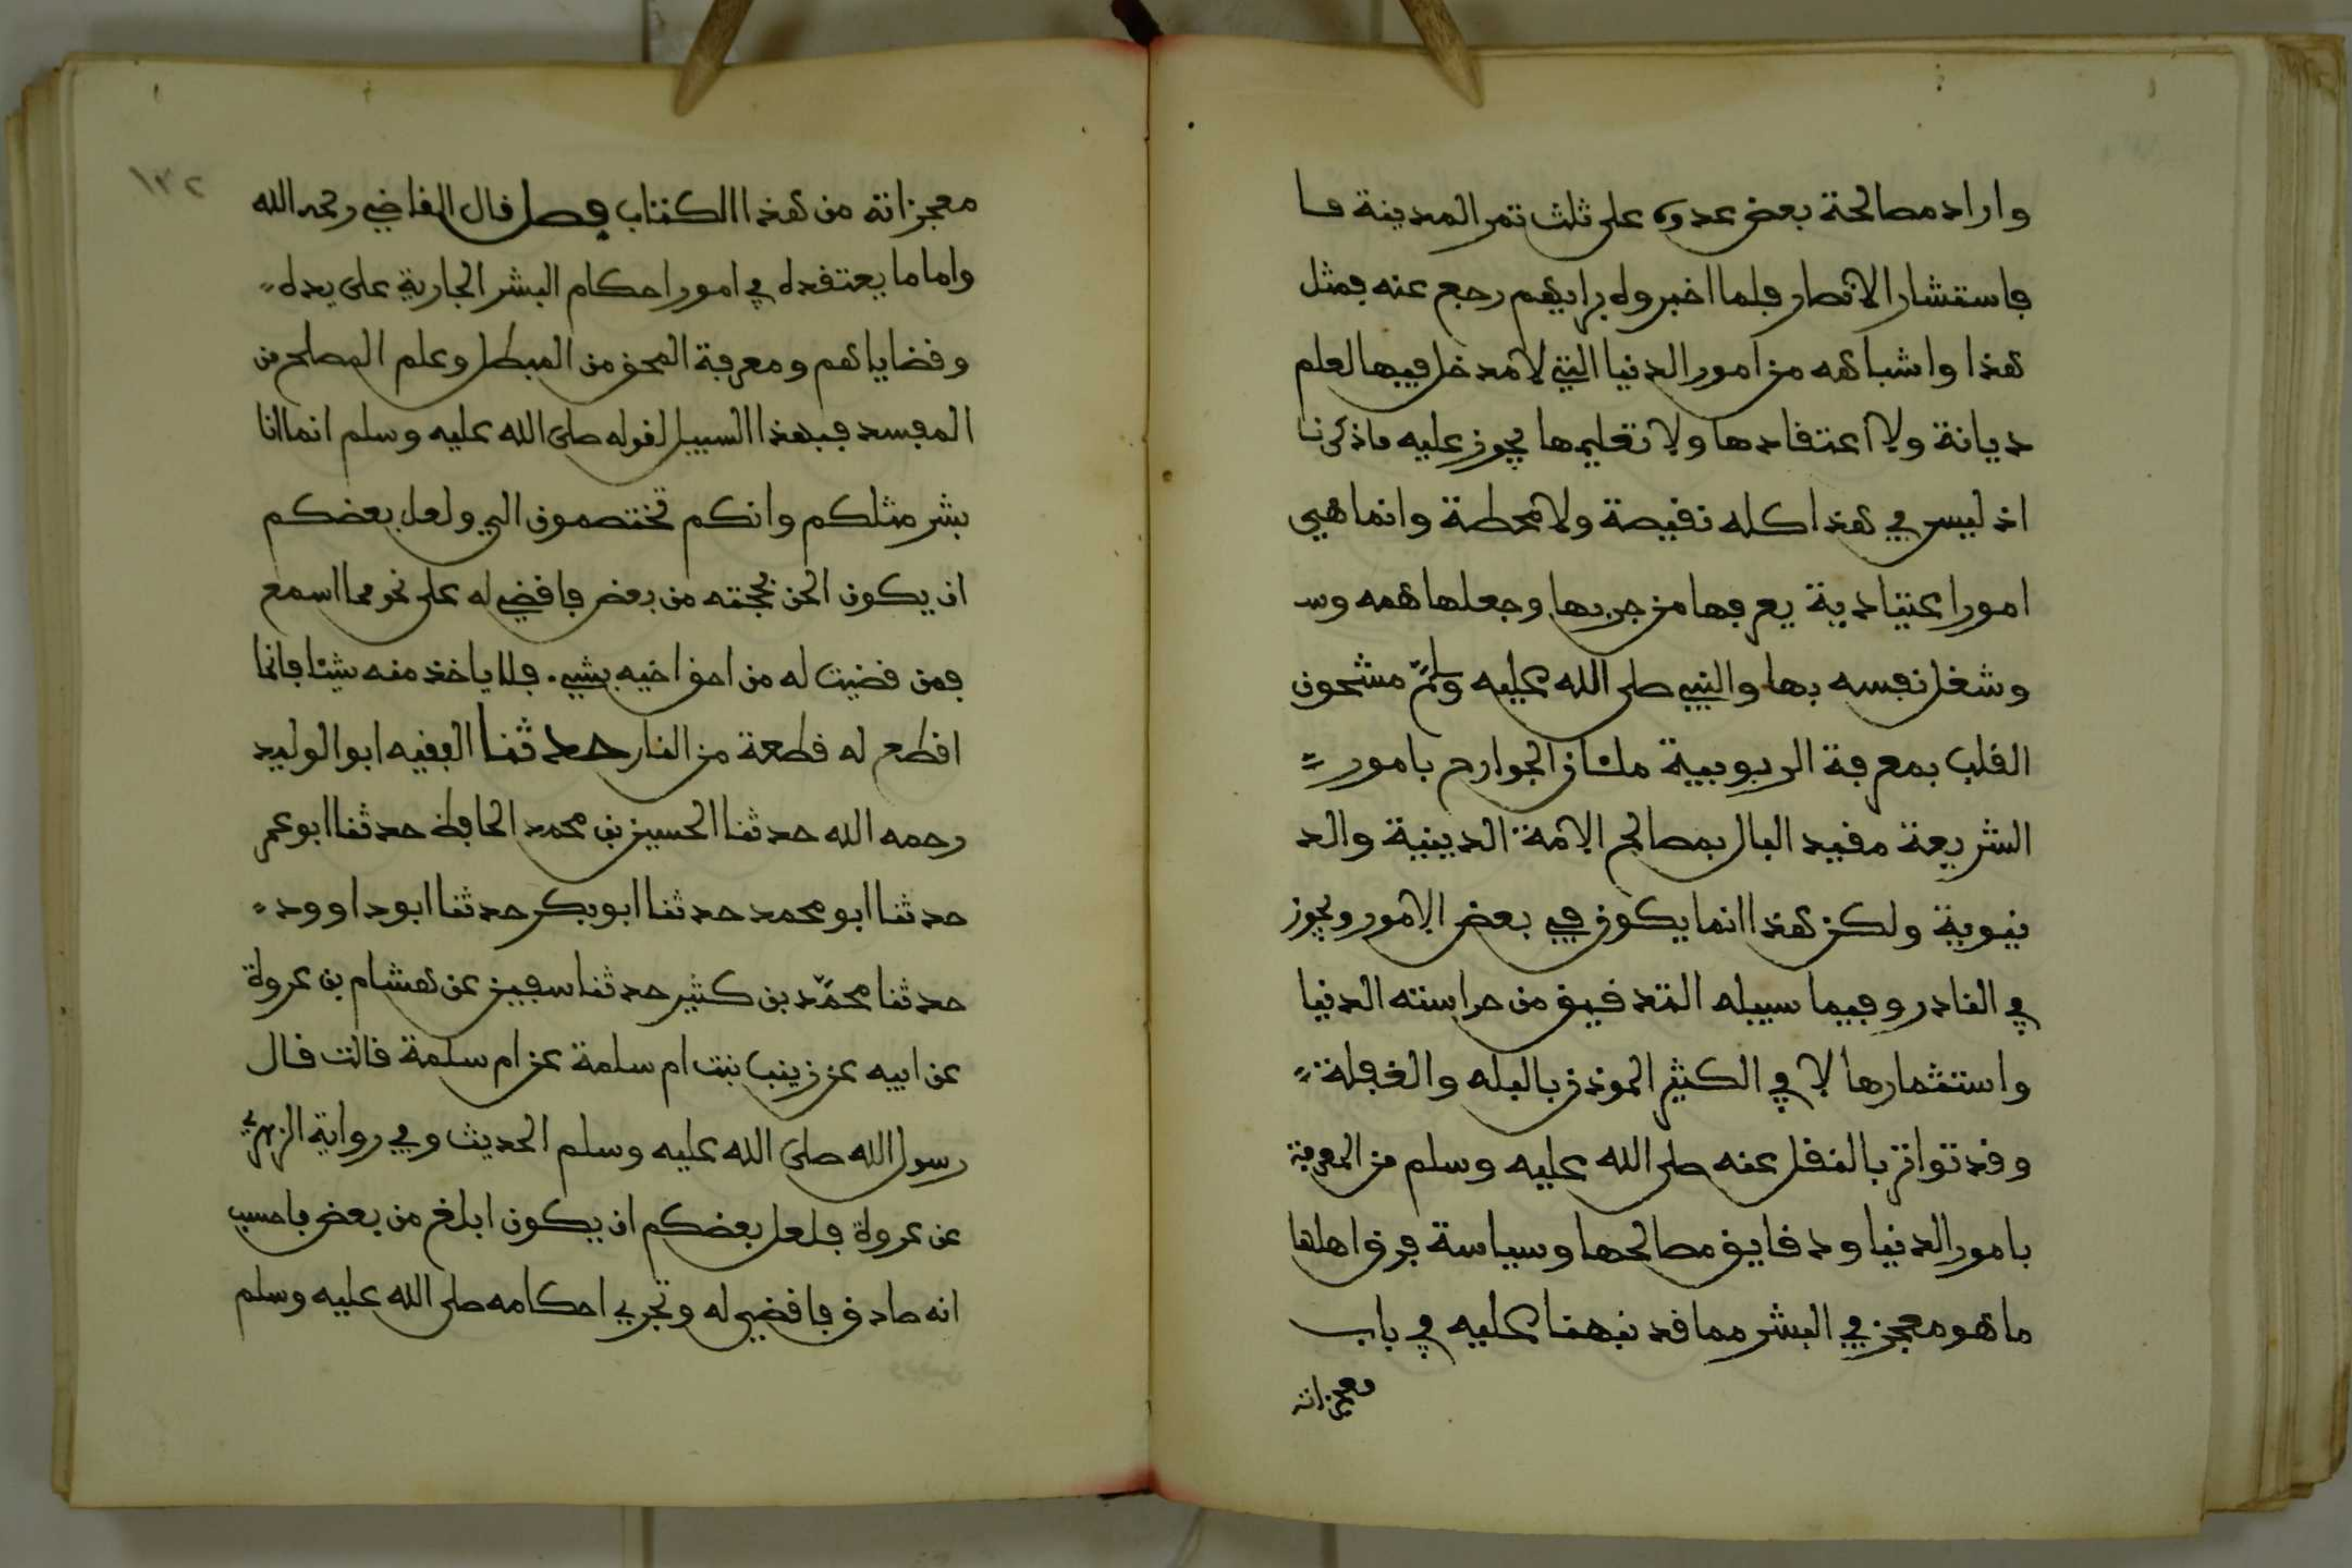 واراد مصالحة بعض عدوه على ثلث تمر المدينة فا
فاستشار الانصار فلما اخبروه برايهم رجع عنه فمثل
هذا واشباهه من امور الدنيا التي لا مدخل فيها لعلم
ديانة ولا اعتقادها ولا تعليمها يجوز عليه ماذكرنا
اذ ليس في هذا كله نقيصة ولا محطة وانما هي
امورا عتيادية يعرفها من جربها وجعلها همه وس
وشغل نفسه بها والنبي صلى الله عليه وسلم مشحون
القلب بمعرفة الربوبية ملئان الجوارح بامور
الشريعة مقيد البال بمصالح الامة الدينية والد
نيوية ولكن هذا انما يكون في بعض الامور ويجوز
في النادر وفيما سبيله التدقيق من حراسته الدنيا
واستثمارها لا في الكثير الموذن بالبله والغفلة
وقد تواتر بالنقل عنه صلى الله عليه وسلم من المعرفة
بامور الدنيا ودقايق مصالحها وسياسة فرق اهلها
ما هو معجز في البشر مما قد نبهنا عليه في باب
معجزاته
١٣٢
معجزاته من هذا الكتاب فصل قال القاضي رحمه الله
واما ما يعتقده في امور احكام البشر الجارية على يده
وقضاياهم ومعرفة المحق من المبطل وعلم المصلح من
المفسد فبهذا السبيل لقوله صلى الله عليه وسلم انما انا
بشر مثلكم وانكم تختصمون الي ولعل بعضكم
ان يكون الحن بحجته من بعض فاقضي له على نحو مما اسمع
فمن قضيت له من احق اخيه بشيء فلا ياخذ منه شيئا فانما
اقطع له قطعة من النار حدثنا الفقيه ابو الوليد
رحمه الله حدثنا الحسين بن محمد الحافظ حدثنا ابو عمر
حدثنا ابو محمد حدثنا ابو بكر حدثنا ابو داوود
حدثنا محمد بن كثير حدثنا سفين عن هشام بن عروة
عن ابيه عن زينب بنت ام سلمة عن ام سلمة قالت قال
رسول الله صلى الله عليه وسلم الحديث وفي رواية الزهري
عن عروة فلعل بعضكم ان يكون ابلغ من بعض فاحسب
انه صادق فاقضي له وتجري احكامه صلى الله عليه وسلم